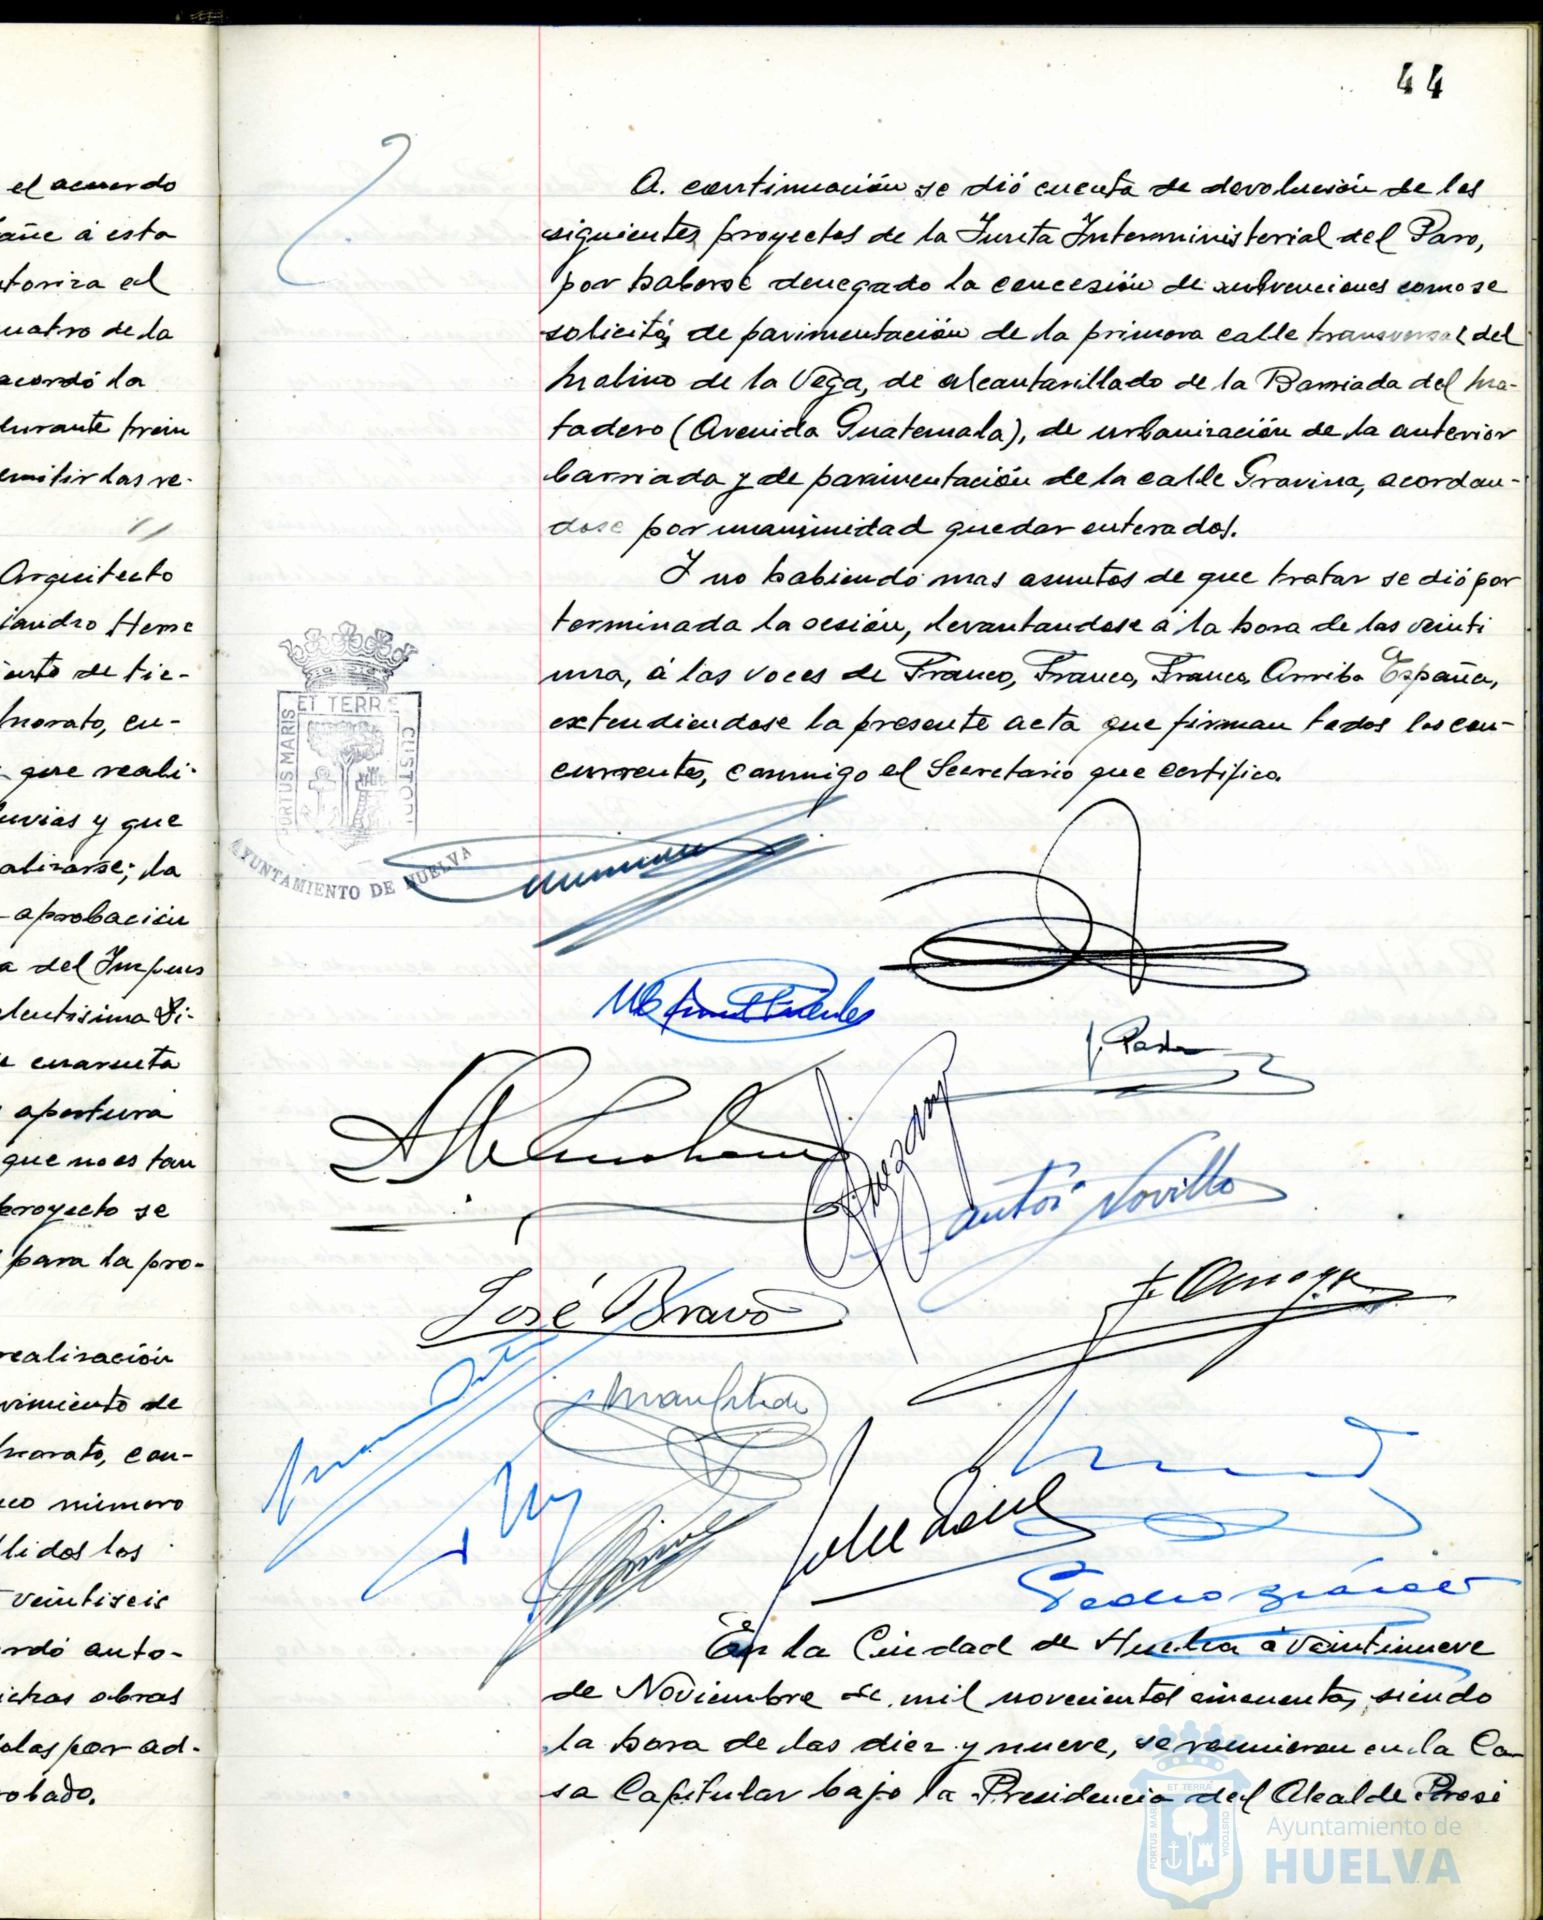 el acuerdo
añe á esta
utoriza el
uatro de la
acordó la
durante trein
emitir las re-
Arquitecto
jandro Herre
ento de tie-
Morato, en-
que reali-
luvias y que
alizarse; la
aprobación
a del Impues
elentisima Di-
e cuarenta
apertura
que no es tan
proyecto se
para la pro-
realización
vimiento de
Morato, con-
ico número
lidos los
veintiseis
rdó auto-
ichas obras
olas por ad-
robado.
44
A. continuación se dió cuenta de devolución de los
siguientes proyectos de la Junta Interministerial del Paro,
por haberse denegado la concesión de subvenciones como se
solicitó, de pavimentación de la primera calle transversal del
Molino de la Vega, de alcantarillado de la Barriada del Ma-
tadero (Avenida Guatemala), de urbanización de la anterior
barriada y de pavimentación de la calle Gravina, acordan-
dose por unanimidad quedar enterados.
Y no habiendo mas asuntos de que tratar se dió por
terminada la sesión, levantandose á la hora de las veinti
una, á las voces de Franco, Franco, Franco, Arriba España,
extendiendose la presente acta que firman todos los con-
currentes, conmigo el Secretario que certifico.
PORTUS MARIS ET TERRE CUSTODI
AYUNTAMIENTO DE HUELVA
J. Pastor
Antoº Novillo
José Bravo
Pedro
En la Ciudad de Huelva á veintinueve
de Noviembre de mil novecientos cincuenta, siendo
la hora de las diez y nueve, se reunieron en la Ca-
sa Capitular bajo la Presidencia del Alcalde Presi
PORTUS MARIS ET TERRA CUSTODIA
Ayuntamiento de
HUELVA